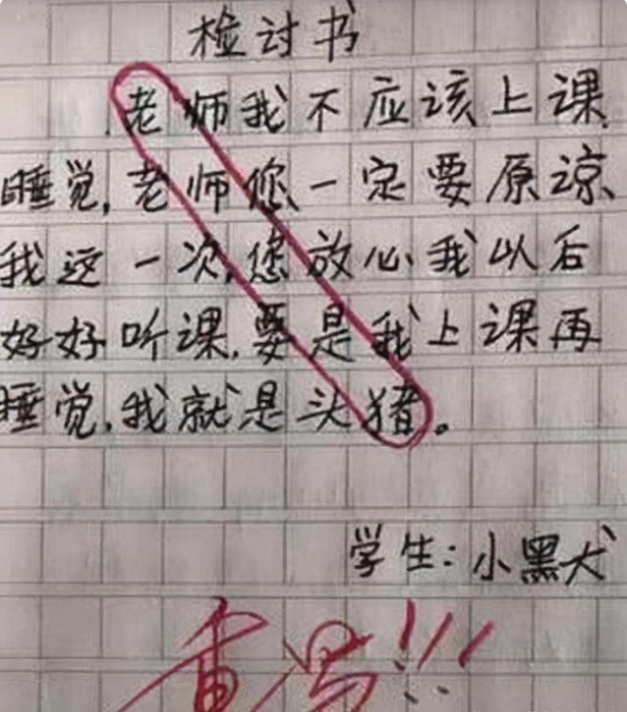 检讨书
老师我不应该上课
睡觉,老师您一定要原谅
我这一次,您放心我以后
好好听课,要是我上课再
睡觉,我就是头猪。
学生:小黑犬
重写!!!